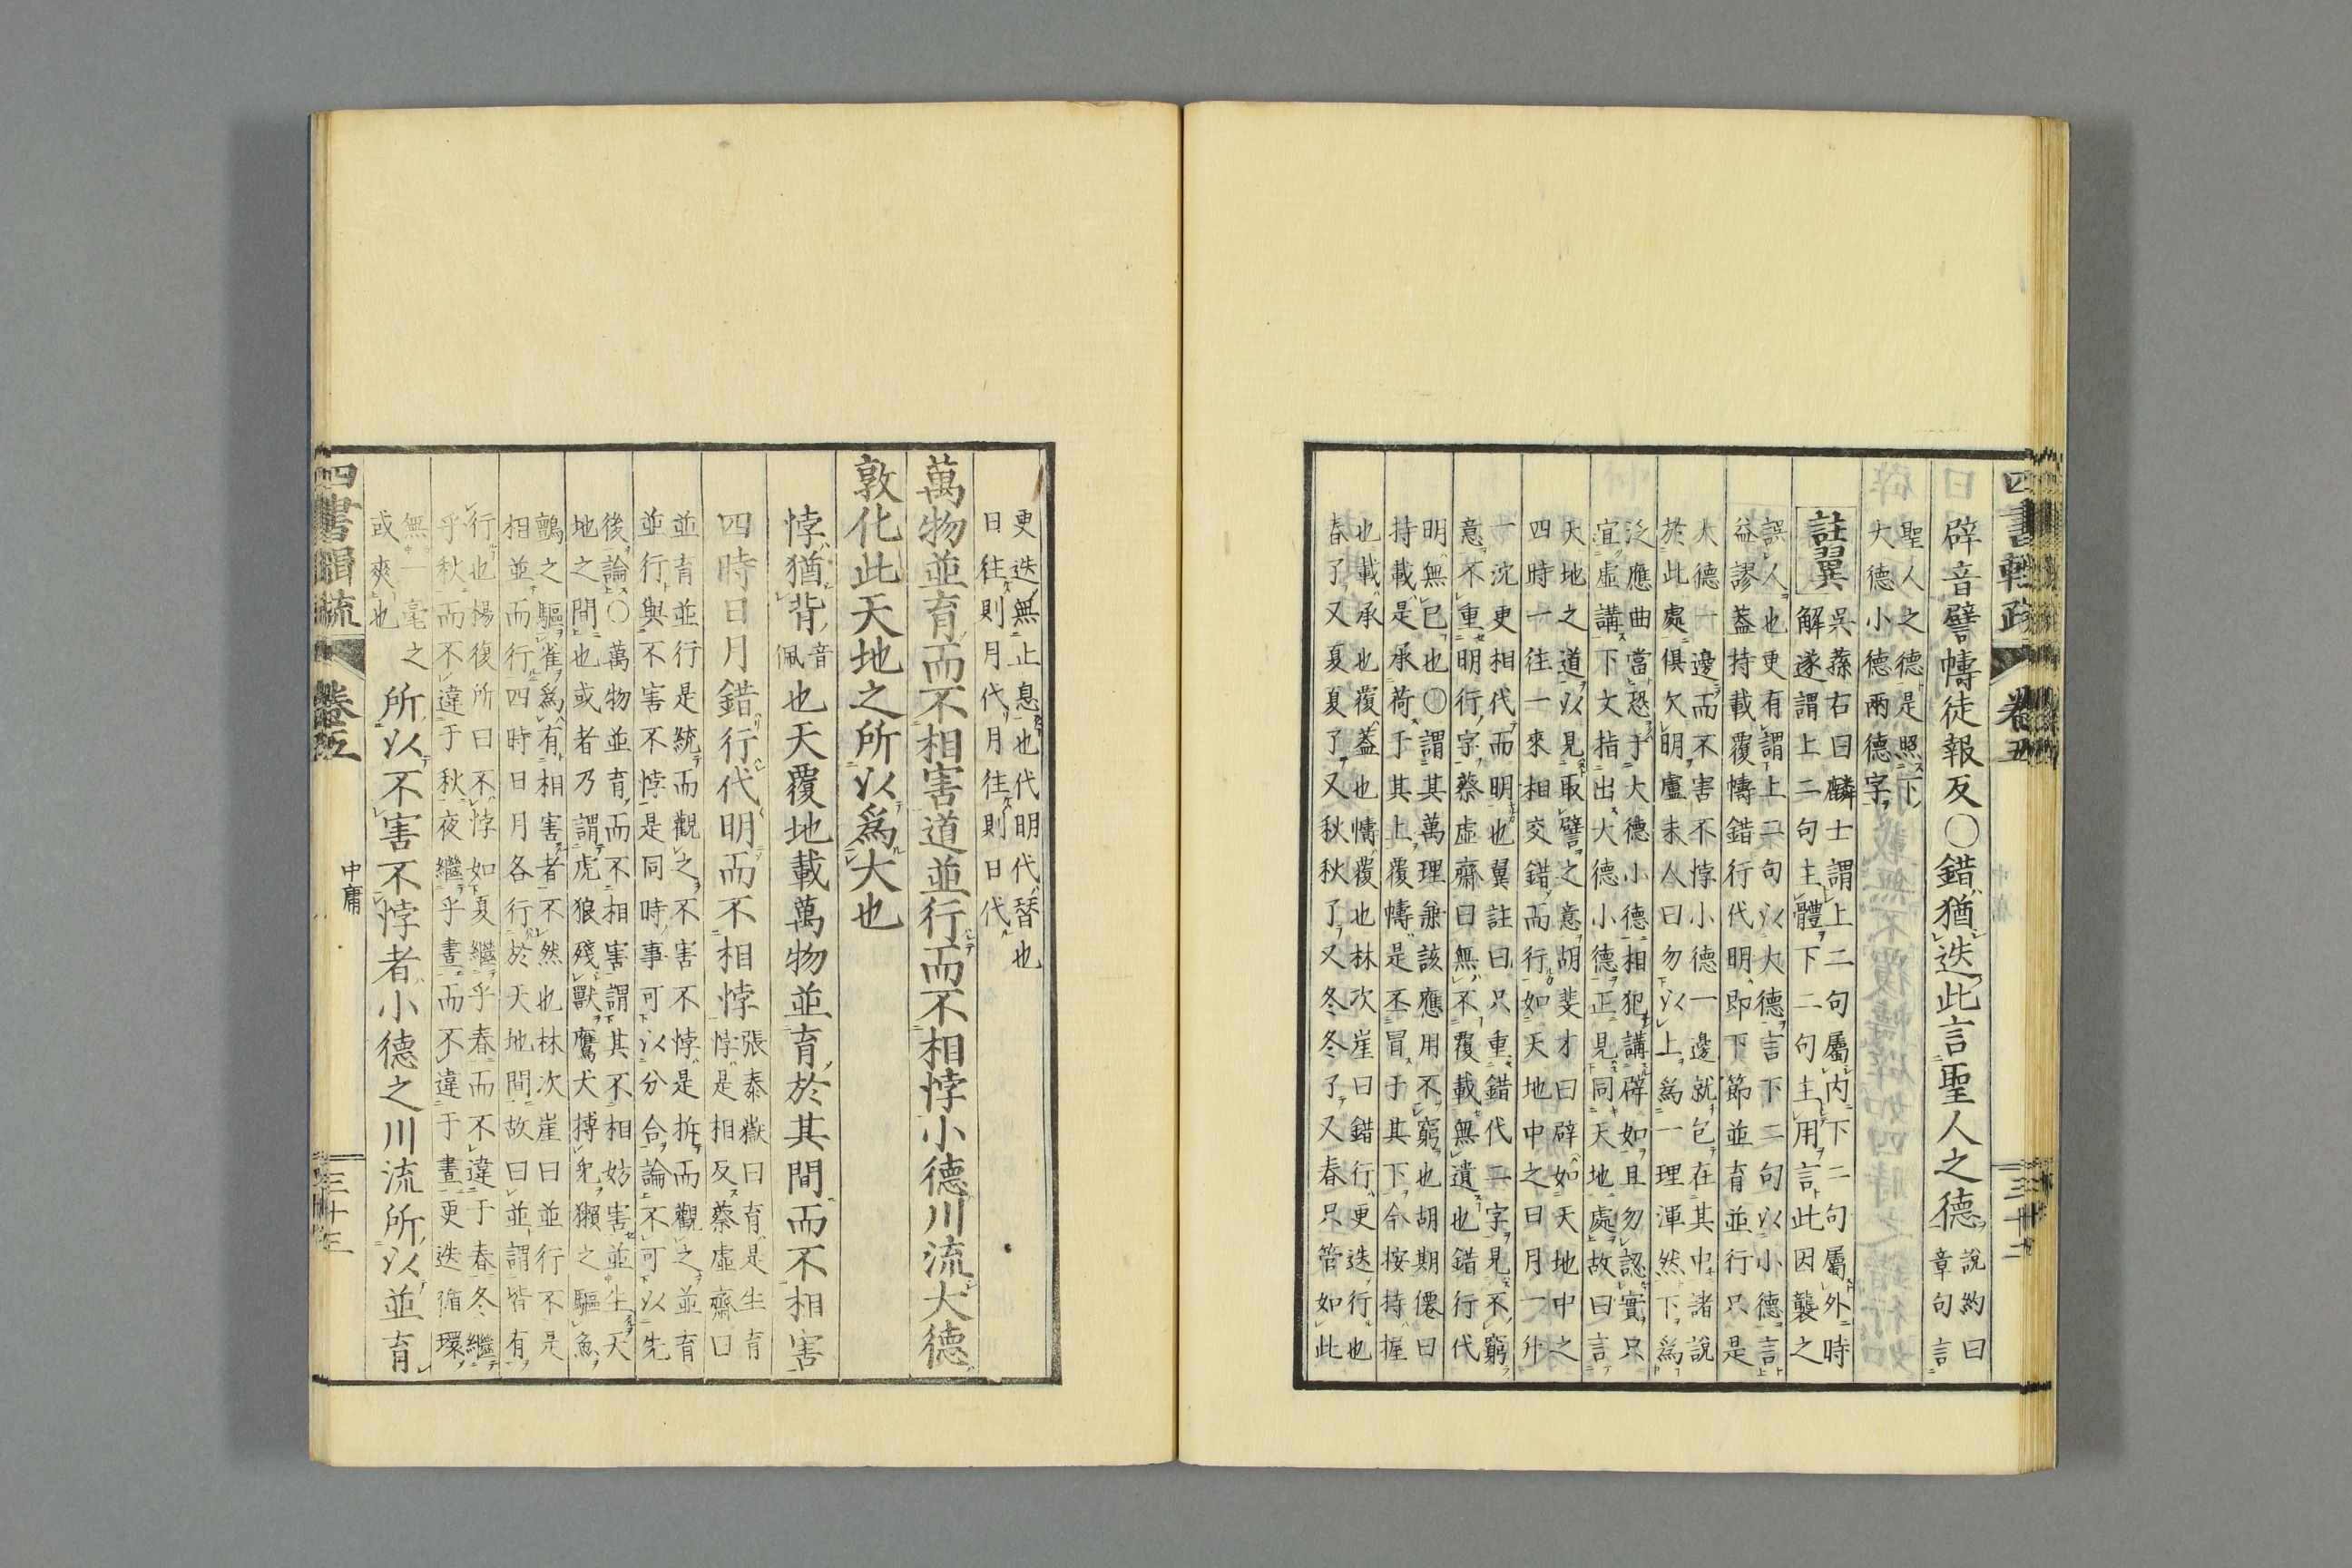 辟音譬幬徒報反〇錯猶迭此言聖人之德
說約曰
章句言
聖人之德是照下
大德小德兩德字
註翼
吳蓀右曰麟士謂上二句屬内下二句屬外時
解遂謂上二句主體下二句主用言此因襲之
誤人也更有謂上二句以大德言下二句以小德言
益謬蓋持載覆幬錯行代明即下節並育並行只是
大德一邊而不害不悖小德一邊就包在其中諸說
於此處俱欠明盧未人曰勿以上爲一理渾然下爲
泛應曲當恐于大德小德相犯講辟如且勿認實只
宜虛講下文指出大德小德正見同天地處故曰言
天地之道以見取譬之意胡斐才曰辟如天地中之
四時一往一來相交錯而行如天地中之日月一升
一沉更相代而明也翼註曰只重錯代二字見不窮
意不重明行字蔡虛齋曰無不覆載無遺也錯行代
明無已也〇謂其萬理兼該應用不窮也胡期僊曰
持載是承荷于其上覆幬是丕冒于其下今按持握
也載承也覆蓋也幬覆也林次崖曰錯行更迭行也
春了又夏夏了又秋秋了又冬冬了又春只管如此
四書輯疏
卷五
三十二
更迭無止息也代明代替也
日往則月代月往則日代
萬物並育而不相害道並行而不相悖小德川流大德
敦化此天地之所以爲大也
悖猶背
音
佩
也天覆地載萬物並育於其間而不相害
四時日月錯行代明而不相悖
張泰嶽曰育是生育
悖是相反蔡虛齋曰
並育並行是統而觀之不害不悖是拆而觀之並育
並行與不害不悖是同時事可以分合論不可以先
後論〇萬物並育而不相害謂其不相妨害並生天
地之間也或者乃謂虎狼殘獸鷹犬搏兔獺之驅魚
鸇之驅雀爲有相害者不然也林次崖曰並行不是
相並而行四時日月各行於天地間故曰並謂皆有
行也楊復所曰不悖如夏繼乎春而不違于春冬繼
乎秋而不違于秋夜繼乎晝而不違于晝更迭循環
無一毫之
或爽也
所以不害不悖者小德之川流所以並育
四書輯疏
卷五
中庸
三十三